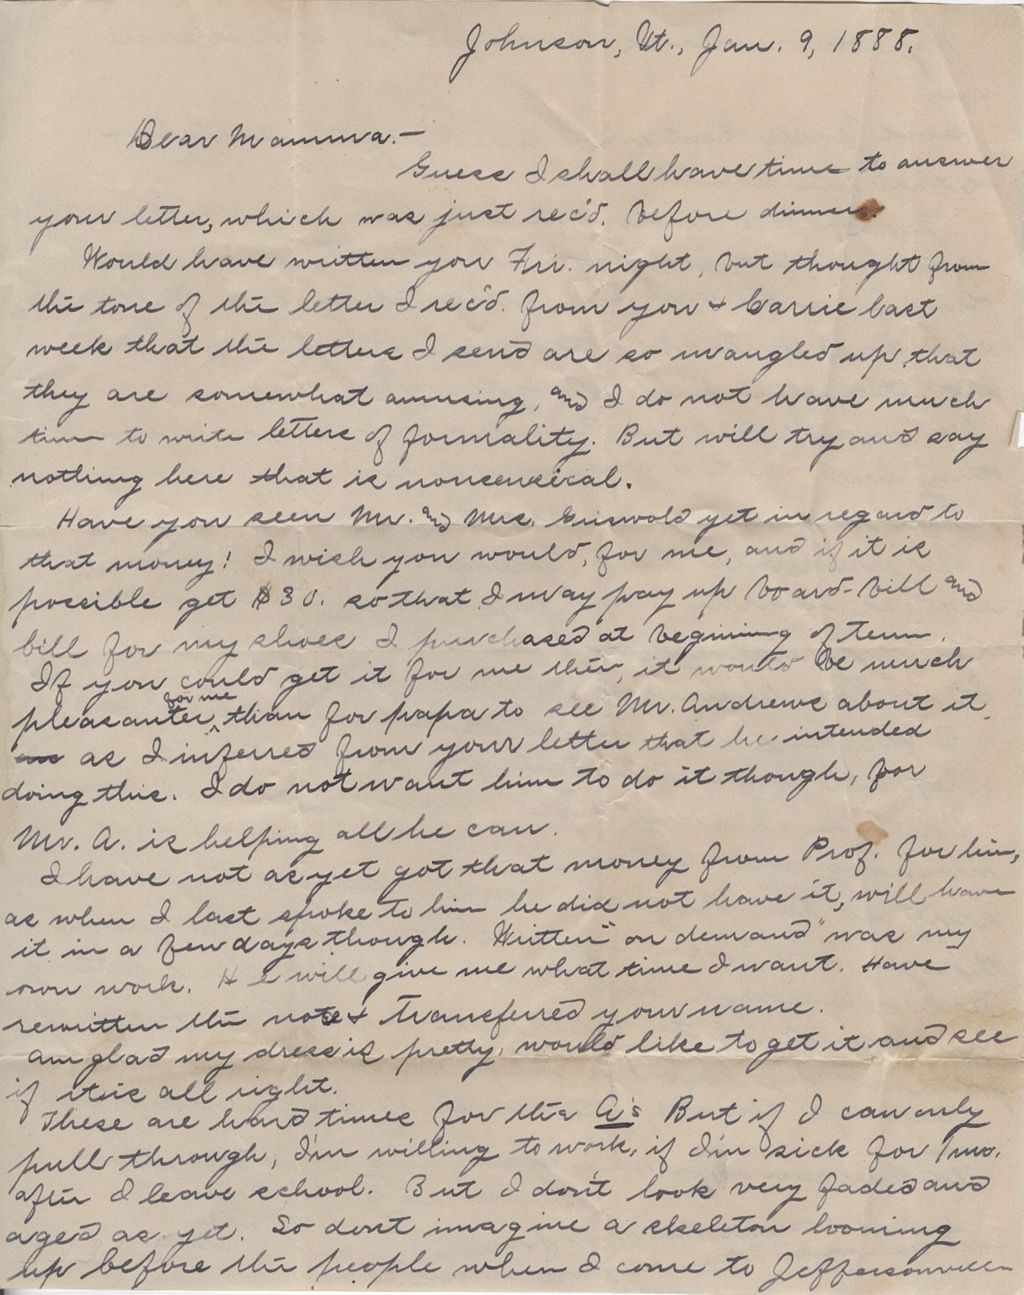 Johnson, Vt., Jan. 9, 1888.
Dear Mamma.—
Guess I shall have time to answer
your letter, which was just rec'd. before dinner.
Would have written you Fri. night, but thought from
the tone of the letter I rec'd. from you & Carrie last
week that the letters I send are so mangled up that
they are somewhat amusing, and I do not have much
time to write letters of formality. But will try and say
nothing here that is nonsensical.
Have you seen Mr. and Mrs. Griswold yet in regard to
that money! I wish you would, for me, and if it is
possible get $30. so that I may pay up board-bill and
bill for my shoes I purchased at begining of term.
If you could get it for me then, it would be much
pleasanter for me, than for papa to see Mr. Andrews about it,
as I inferred from your letter that he intended
doing this. I do not want him to do it though, for
Mr. A. is helping all he can.
I have not as yet got that money from Prof. for him,
as when I last spoke to him he did not have it, will have
it in a few days though. Written "on demand" was my
own work. He will give me what time I want. Have
rewritten the note & transferred your name.
Am glad my dress is pretty, would like to get it and see
if it is all right.
These are hard times for the A's But if I can only
pull through, I'm willing to work, if I'm sick for 1 mo.
after I leave school. But I don't look very faded and
aged as yet. So dont imagine a skeleton looming
up before the people when I come to Jeffersonville